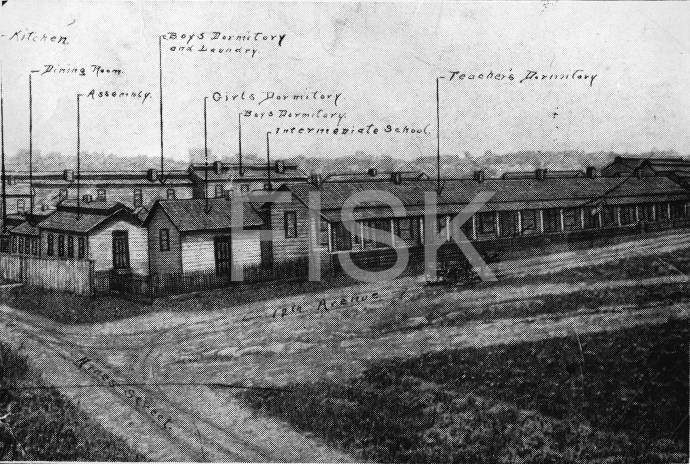 Kitchen
Dining Room
Assembly.
Boys Dormitory
and Laundry.
Girls Dormitory
Boys Dormitory.
Intermediate School.
Teacher's Dormitory
FISK
12th Avenue
Street.